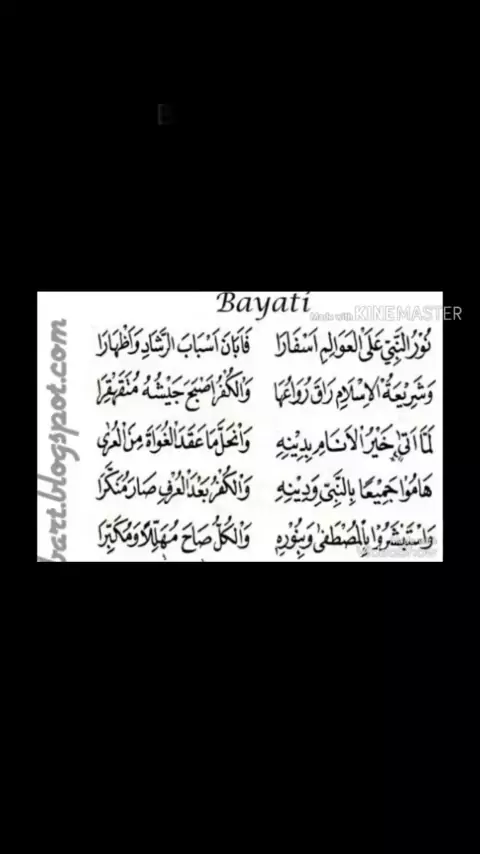 Bayati
Made with KINEMASTER
نُوْرُ النَّبِيِّ عَلَى الْعَوَالِمِ اَسْفَارَا فَاَبَانَ اَسْبَابَ الرَّشَادِ وَاَظْهَارَا
وَشَرِيْعَةُ الْاِسْلَامِ رَاقَ رُوَاعُهَا وَالْكُفْرُ اَصْبَحَ جَيْشُهُ مُتَقَهْقِرَا
لَمَّا اَتَى خَيْرُ الْاَنَامِ بِدِيْنِهِ وَانْحَلَّ مَا عَقَدَ الْغُوَاةُ مِنَ الْعُرٰى
هَامُوْا جَمِيْعًا بِالنَّبِيِّ وَدِيْنِهِ وَالْكُفْرُ بَعْدَ الْعُرْفِ صَارَ مُنَكَّرَا
وَاسْتَبْشَرُوْا بِالْمُصْطَفٰى وَبِنُوْرِهِ وَالْكُلُّ صَاحَ مُهَلِّلًا وَمُكَبِّرَا
bart.blogspot.com